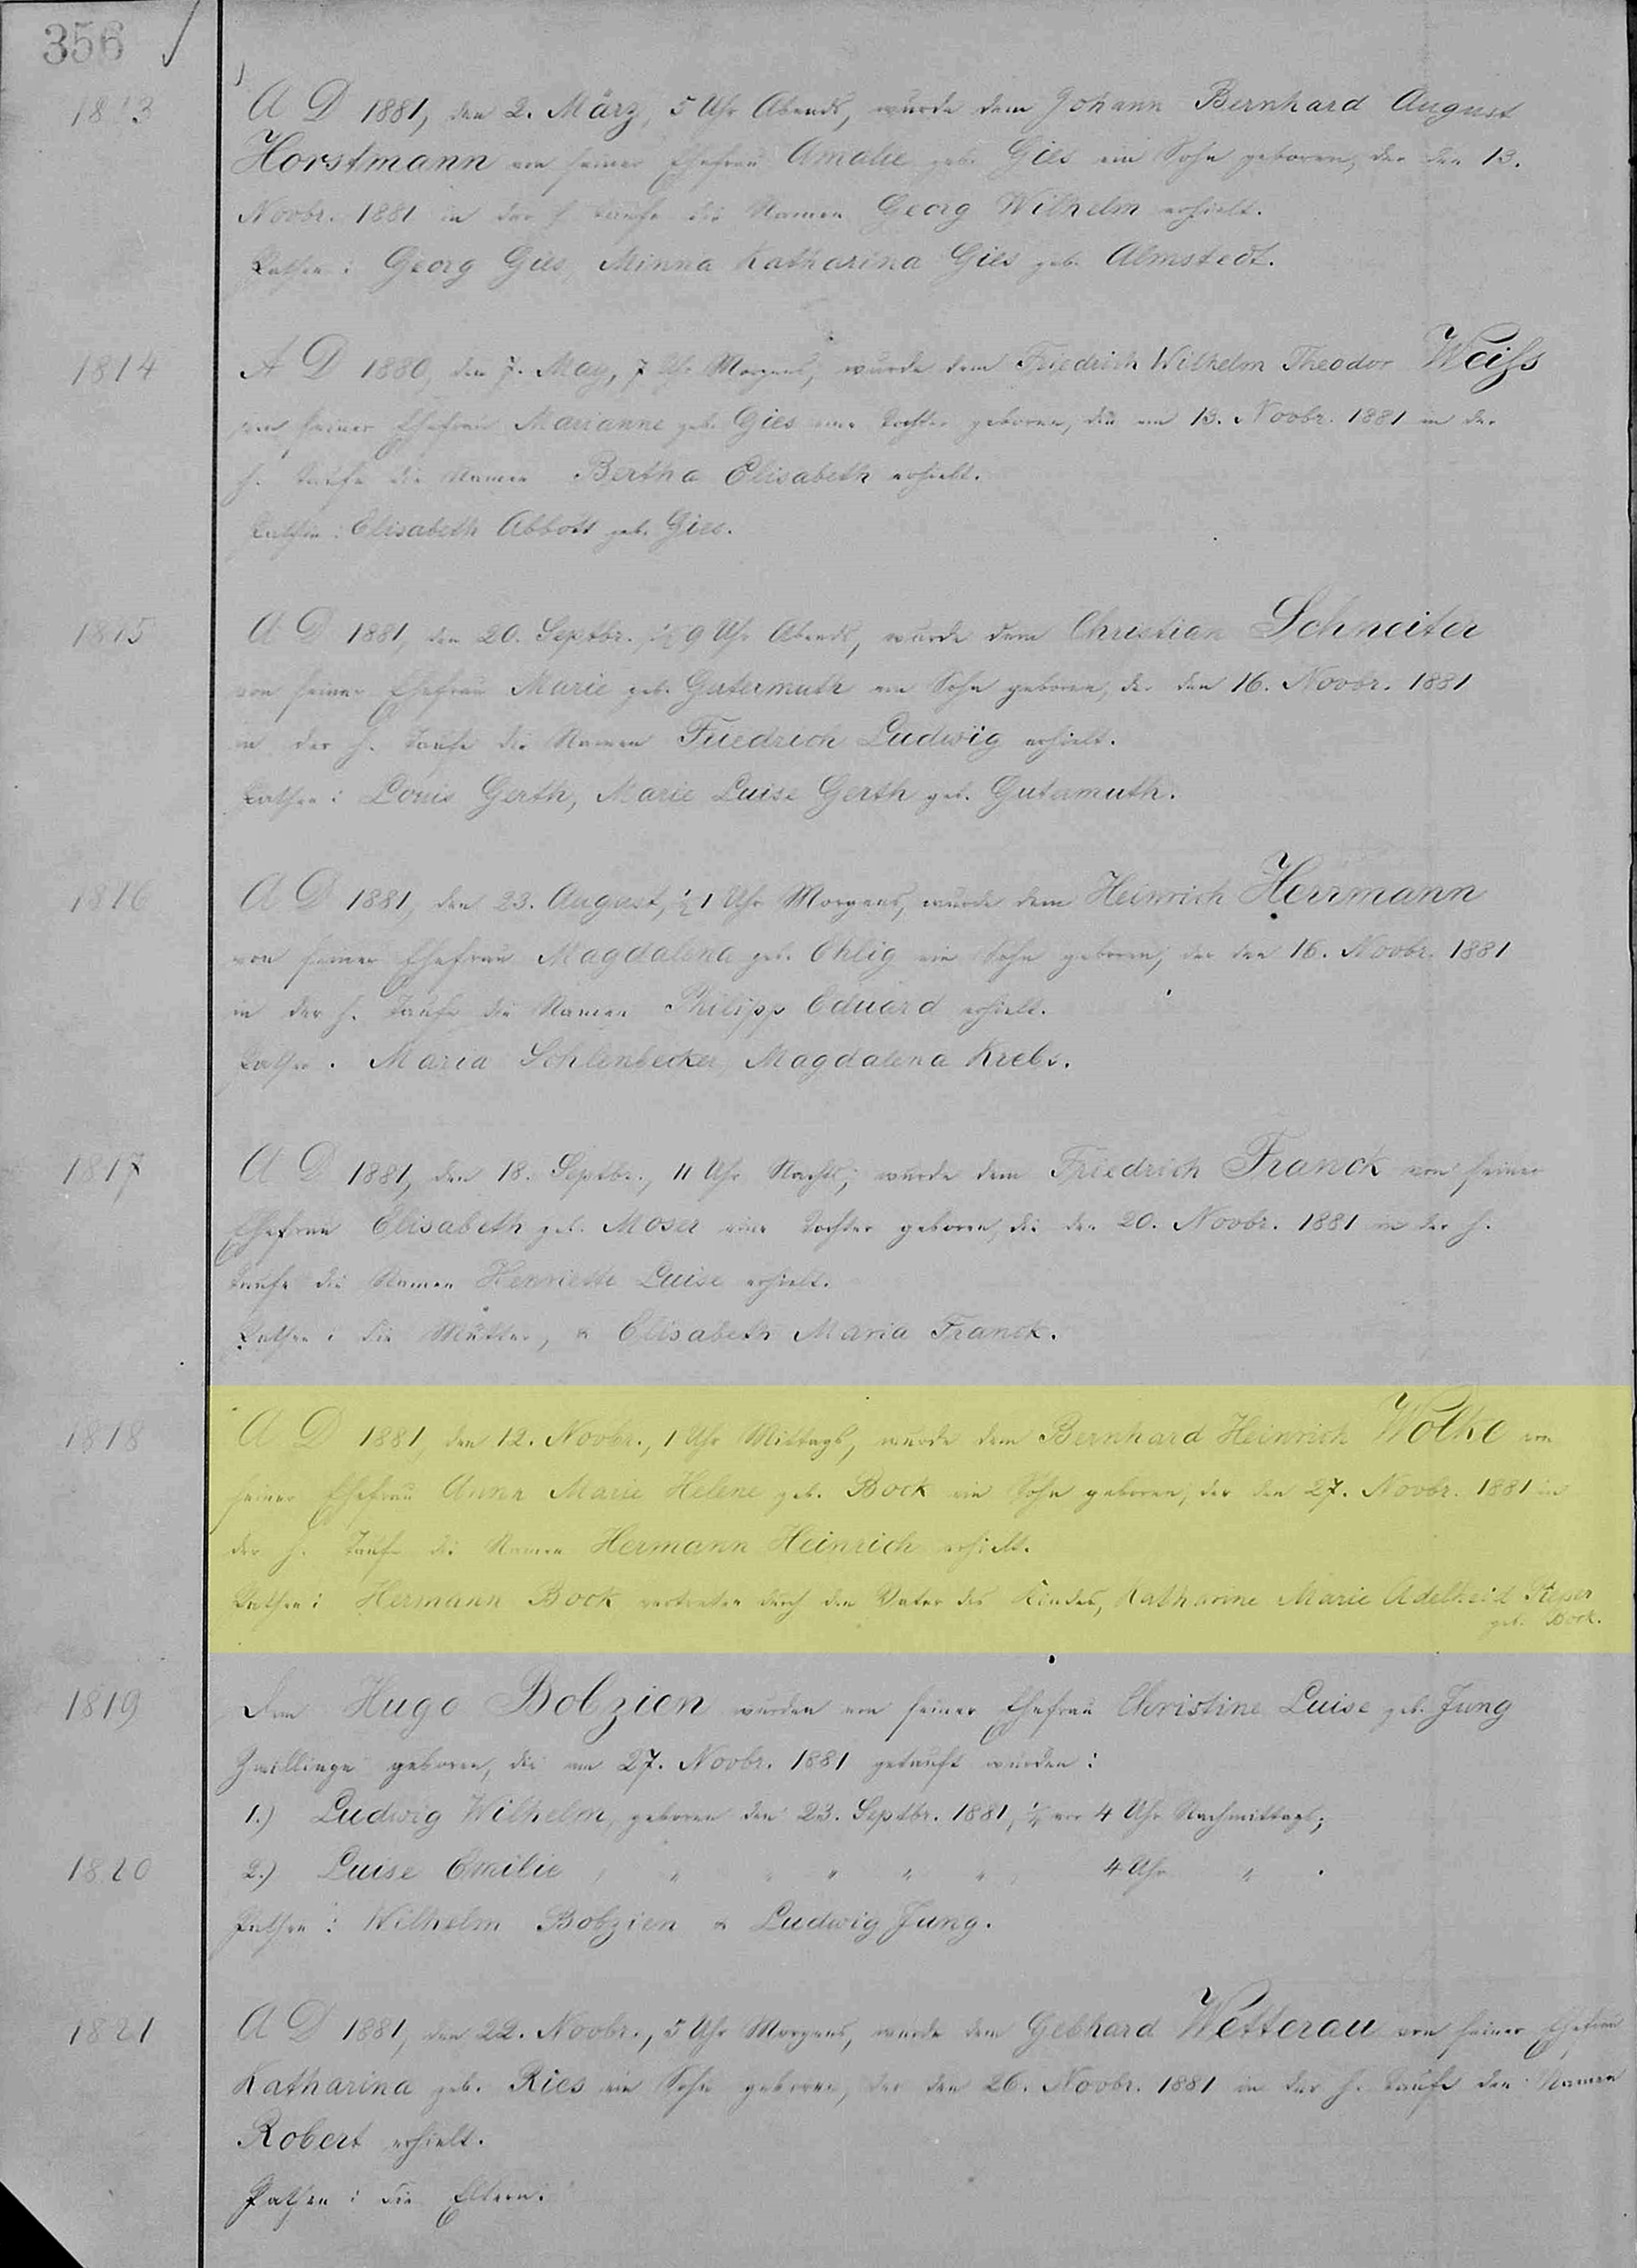 356
1813
A D 1881, den 2. März, 5 Uhr Abends, wurde dem Johann Bernhard August
Horstmann von seiner Ehefrau Amalie geb. Gies ein Sohn geboren, der den 13.
Novbr. 1881 in der h. Taufe die Namen Georg Wilhelm erhielt.
Pathen: Georg Gies, Minna Katharina Gies geb. Almstedt.
1814
A D 1880, den 7. May, 7 Uhr Morgens, wurde dem Friedrich Wilhelm Theodor Weiß
von seiner Ehefrau Marianne geb. Gies eine Tochter geboren, die am 13. Novbr. 1881 in der
h. Taufe die Namen Bertha Elisabeth erhielt.
Pathin: Elisabeth Abbott geb. Gies.
1815
A D 1881, den 20. Septbr., ½9 Uhr Abends, wurde dem Christian Schneiter
von seiner Ehefrau Marie geb. Gutermuth ein Sohn geboren, der den 16. Novbr. 1881
in der h. Taufe die Namen Friedrich Ludwig erhielt.
Pathen: Louis Gerth, Marie Luise Gerth geb. Gutermuth.
1816
A D 1881, den 23. August, ½1 Uhr Morgens, wurde dem Heinrich Herrmann
von seiner Ehefrau Magdalena geb. Ohlig ein Sohn geboren, der den 16. Novbr. 1881
in der h. Taufe die Namen Philipp Eduard erhielt.
Maria Schlenbecker, Magdalena Krebs.
1817
A D 1881, den 18. Septbr., 11 Uhr Nachts, wurde dem Friedrich Franck von seiner
Ehefrau Elisabeth geb. Moser eine Tochter geboren, die den 20. Novbr. 1881 in der h.
Taufe die Namen Henriette Luise erhielt.
Pathen: die Mutter, & Elisabeth Maria Franck.
1818
A D 1881, den 12. Novbr., 1 Uhr Mittags, wurde dem Bernhard Heinrich Wolke von
seiner Ehefrau Anna Marie Helene geb. Bock ein Sohn geboren, der den 27. Novbr. 1881 in
der h. Taufe die Namen Hermann Heinrich erhielt.
Pathen: Hermann Bock vertreten durch den Vater des Kindes, Katharine Marie Adelheid Pieper
geb. Bock.
1819
Dem Hugo Bobzien wurden von seiner Ehefrau Christine Luise geb. Jung
Zwillinge geboren, die am 27. Novbr. 1881 getauft wurden:
1.) Ludwig Wilhelm, geboren den 23. Septbr. 1881, ¼ vor 4 Uhr Nachmittags;
1820
2.) Luise Emilie, " " " " " 4 Uhr " .
Pathen: Wilhelm Bobzien & Ludwig Jung.
1821
A D 1881, den 22. Novbr., 5 Uhr Morgens, wurde dem Gebhard Wetterau von seiner Ehefrau
Katharina geb. Ries ein Sohn geboren, der den 26. Novbr. 1881 in der h. Taufe den Namen
Robert erhielt.
Pathen: die Eltern.